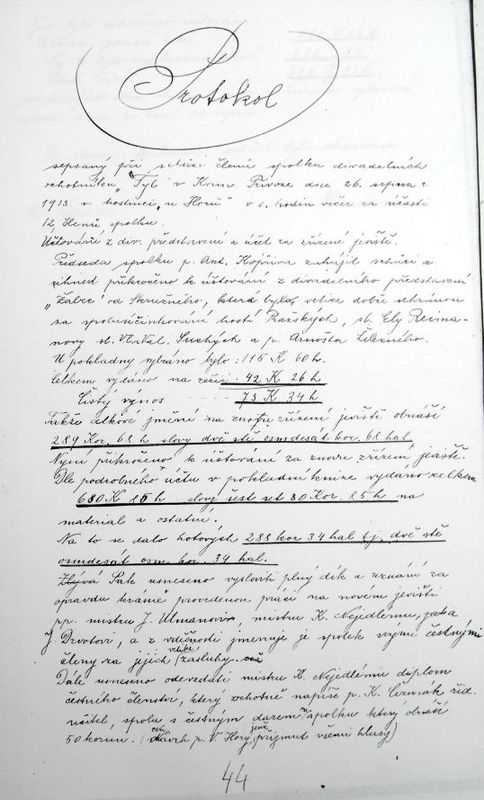 Protokol
sepsaný při schůzi členů spolku divadelních
ochotníků „Tyl" v Kam. Přívoze dne 26. srpna r.
1913 v hostinci „u Horů" v 8. hodin večer za účasti
12 členů spolku.
Účtování z div. představení a účet za zřízené jeviště.
Předseda spolku p. Ant. Kopřiva zahájil schůzi a
ihned přikročeno k účtování z divadelního představení
„Žabec" od Stružného, která byla velice dobře sehránou
za spoluúčinkování hostí Pražských, sl. Ely Reima-
novy sl. Suchých a p. Arnošta Železného.
U pokladny vybráno bylo: 115 K 60 h.
Celkem vydáno na režii: 42 K 26 h
Čistý výnos 73 K 34 h
Takže celkové jmění na znovu zřízení jeviště obnáší
289 Kor. 68 h slovy dvě stě osmdesát kor. 68 hal.
Nyní přikročeno k účtování za znovu zřízení jeviště.
Dle podrobného účtu v pokladní knize vydáno celkem
680 K 85 h slovy šest set 80 Kor. 85 h na
materiál a ostatní.
Na to se dalo hotových 288 kor 34 hal t.j. dvě stě
osmdesát osm kor. 34 hal.
Pak usneseno vysloviti plný dík a uznání za
opravdu krásně provedenou práci na novém jevišti
pp. mistru J. Ulmanovi, mistru K. Nejedlému, pata
J. Drvotovi, a z vděčnosti jmenuje je spolek svými čestnými
členy za jejich veliké zásluhy.
Dále usneseno odevzdati mistru K. Nejedlému diplom
čestného členství, který ochotně napíše p. K. Čermák říd.
učitel, spolu s čestným darem spolku který obnáší
50 korun. (návrh p. V. Hory, přijmut všemi hlasy)
44